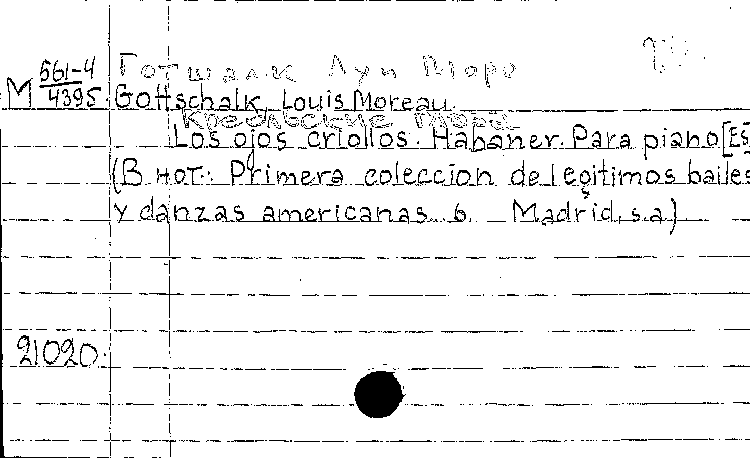 М 561-4/4395
Готшалк Луи Моро
Gottschalk, Louis Moreau.
Креольские глаза
Los ojos criollos. Habaner. Para piano [Es
(В нот.: Primera coleccion de legitimos bailes
y danzas americanas. 6. Madrid, s.a.)
21020.